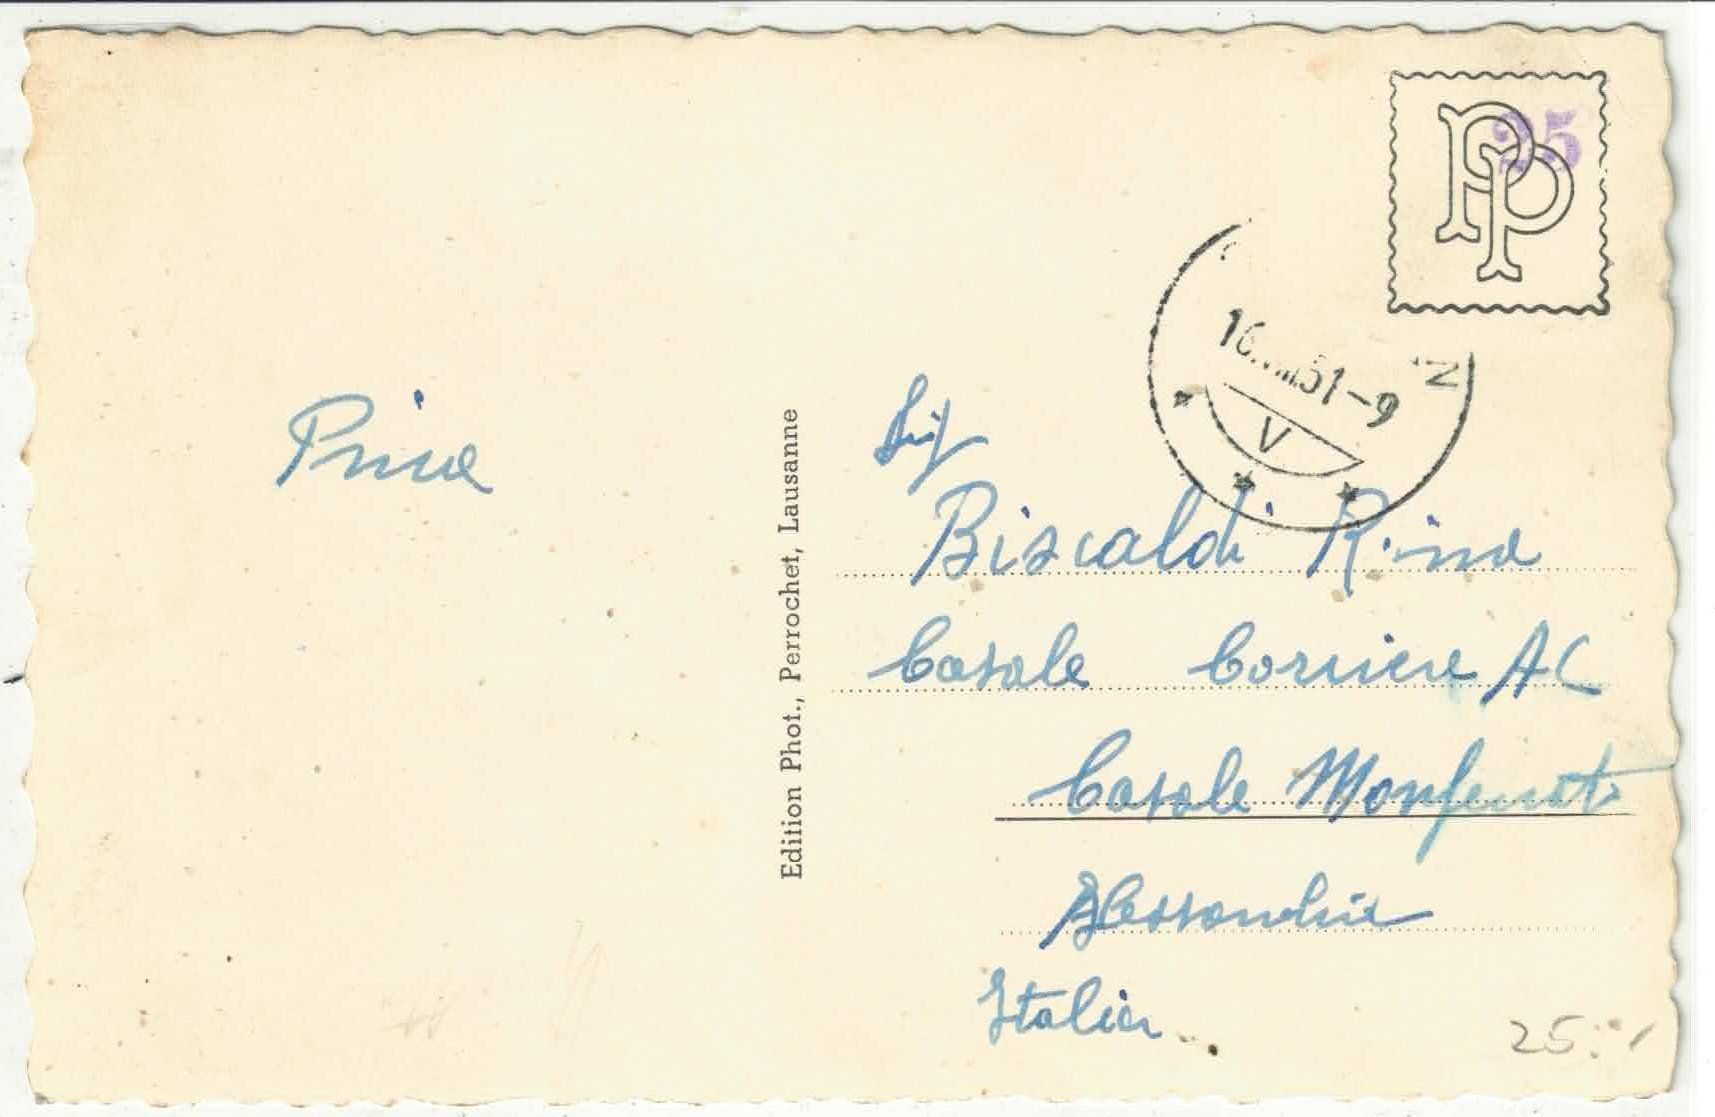 25
PP
16.VIII.51-9
V
Pina
Sig
Biscaldi Rina
Casale Corriere AC
Casale Monferrato
Alessandria
Italien
Edition Phot., Perrochet, Lausanne
25